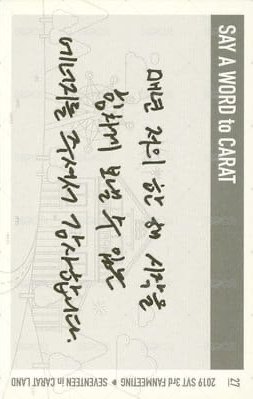 SAY A WORD to CARAT
매년 저희 한 해 시작을
힘차게 보낼 수 있는
에너지를 주셔서 감사합니다.
27
2019 SVT 3rd FANMEETING ♦ SEVENTEEN in CARAT LAND